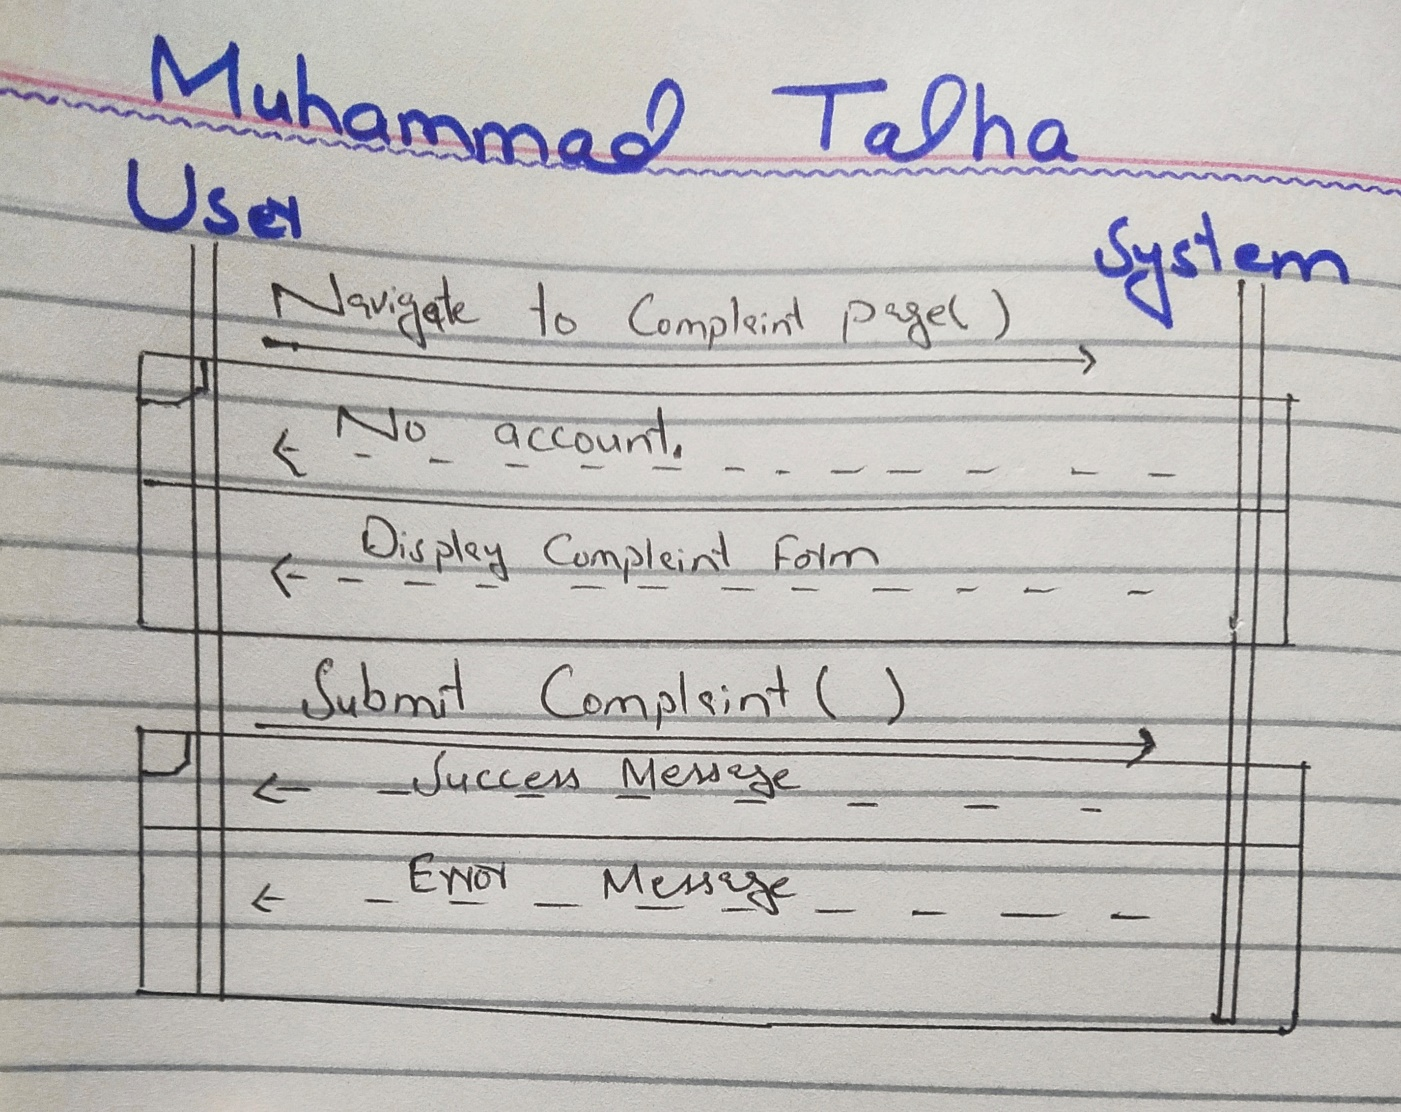 Muhammad Talha
User
System
Navigate to Complaint page( )
No account.
Display Complaint Form
Submit Complaint( )
Success Message
Error Message